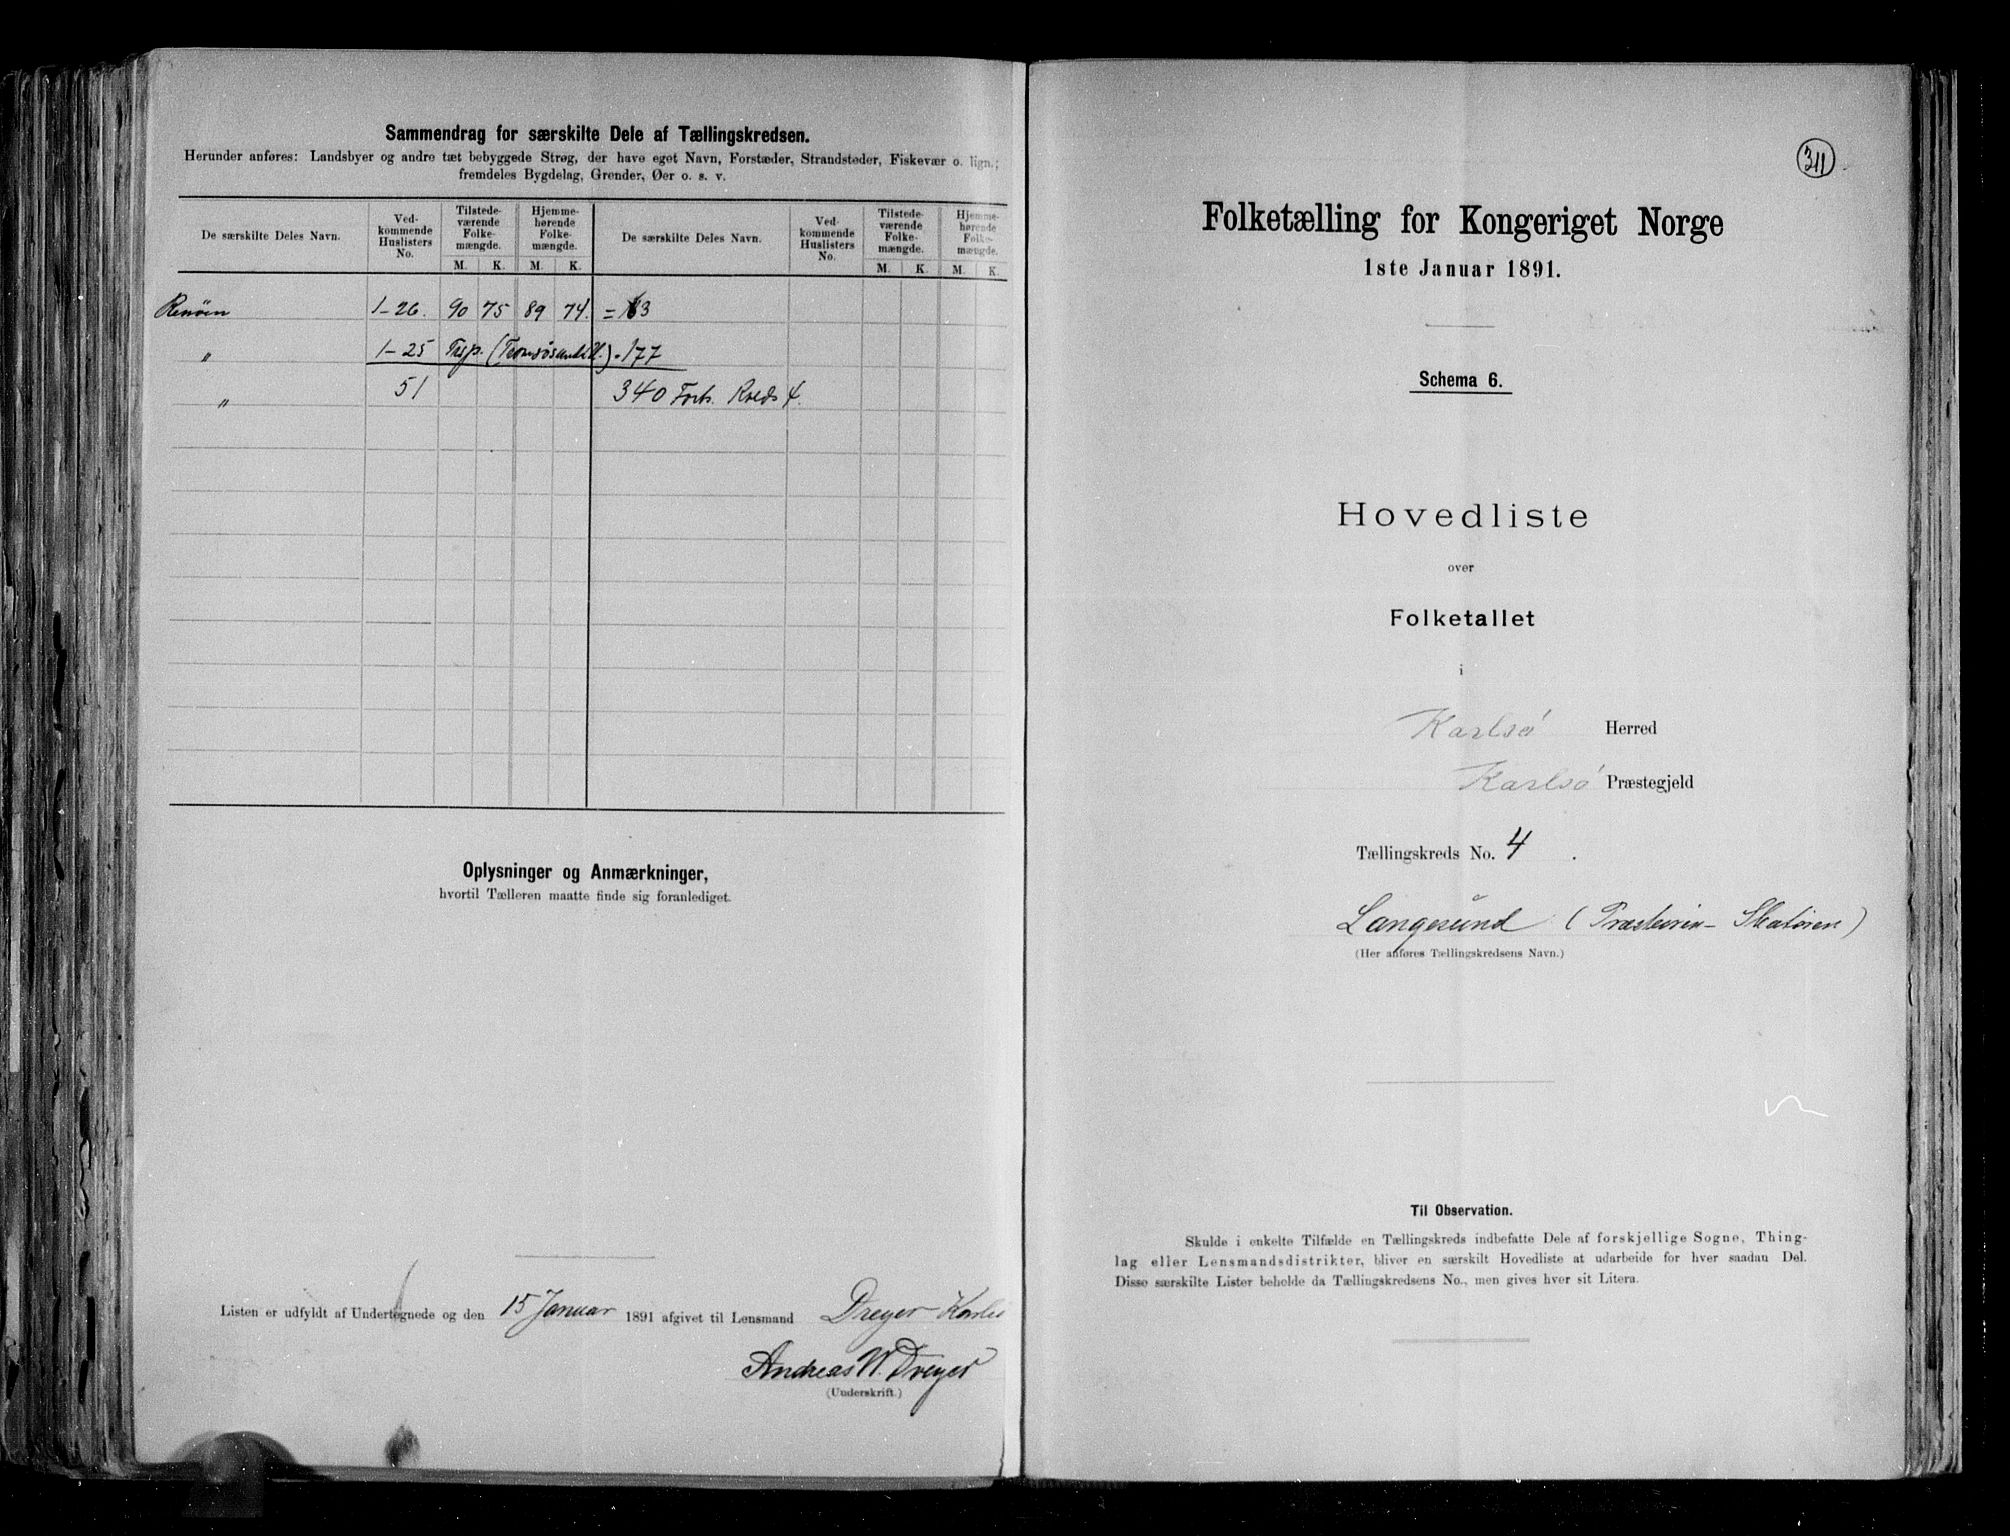 Sammendrag for særskilte Dele af Tællingskredsen.
Herunder anføres: Landsbyer og andre tæt bebyggede Strøg, der have eget Navn, Forstæder, Strandsteder, Fiskevær o. lign.;
fremdeles Bygdelag, Grender, Øer o. s. v.
De særskilte Deles Navn.
Ved-
kommende
Huslisters
No.
Tilstede-
værende
Folke-
mængde.
Hjemme-
hørende
Folke-
mængde.
De særskilte Deles Navn.
Ved-
kommende
Huslisters
No.
Tilstede-
værende
Folke-
mængde.
Hjemme-
hørende
Folke-
mængde.
M. K. M. K. M. K. M. K.
Renøen 1-26. 90 75 89 74. = 163
" 1-25 (Tromsøsundet) 177
" 51 340 Kreds 4.
Oplysninger og Anmærkninger,
hvortil Tælleren maatte finde sig foranlediget.
Listen er udfyldt af Undertegnede og den 15 Januar 1891 afgivet til Lensmand Dreyer Karlsø
Andreas W. Dreyer
(Underskrift.)
311
Folketælling for Kongeriget Norge
1ste Januar 1891.
Schema 6.
Hovedliste
over
Folketallet
i
Karlsø Herred
Karlsø Præstegjeld
Tællingskreds No. 4.
Langesund (Præsteøen - Skatøren)
(Her anføres Tællingskredsens Navn.)
Til Observation.
Skulde i enkelte Tilfælde en Tællingskreds indbefatte Dele af forskjellige Sogne, Thing-
lag eller Lensmandsdistrikter, bliver en særskilt Hovedliste at udarbeide for hver saadan Del.
Disse særskilte Lister beholde da Tællingskredsens No., men gives hver sit Litera.